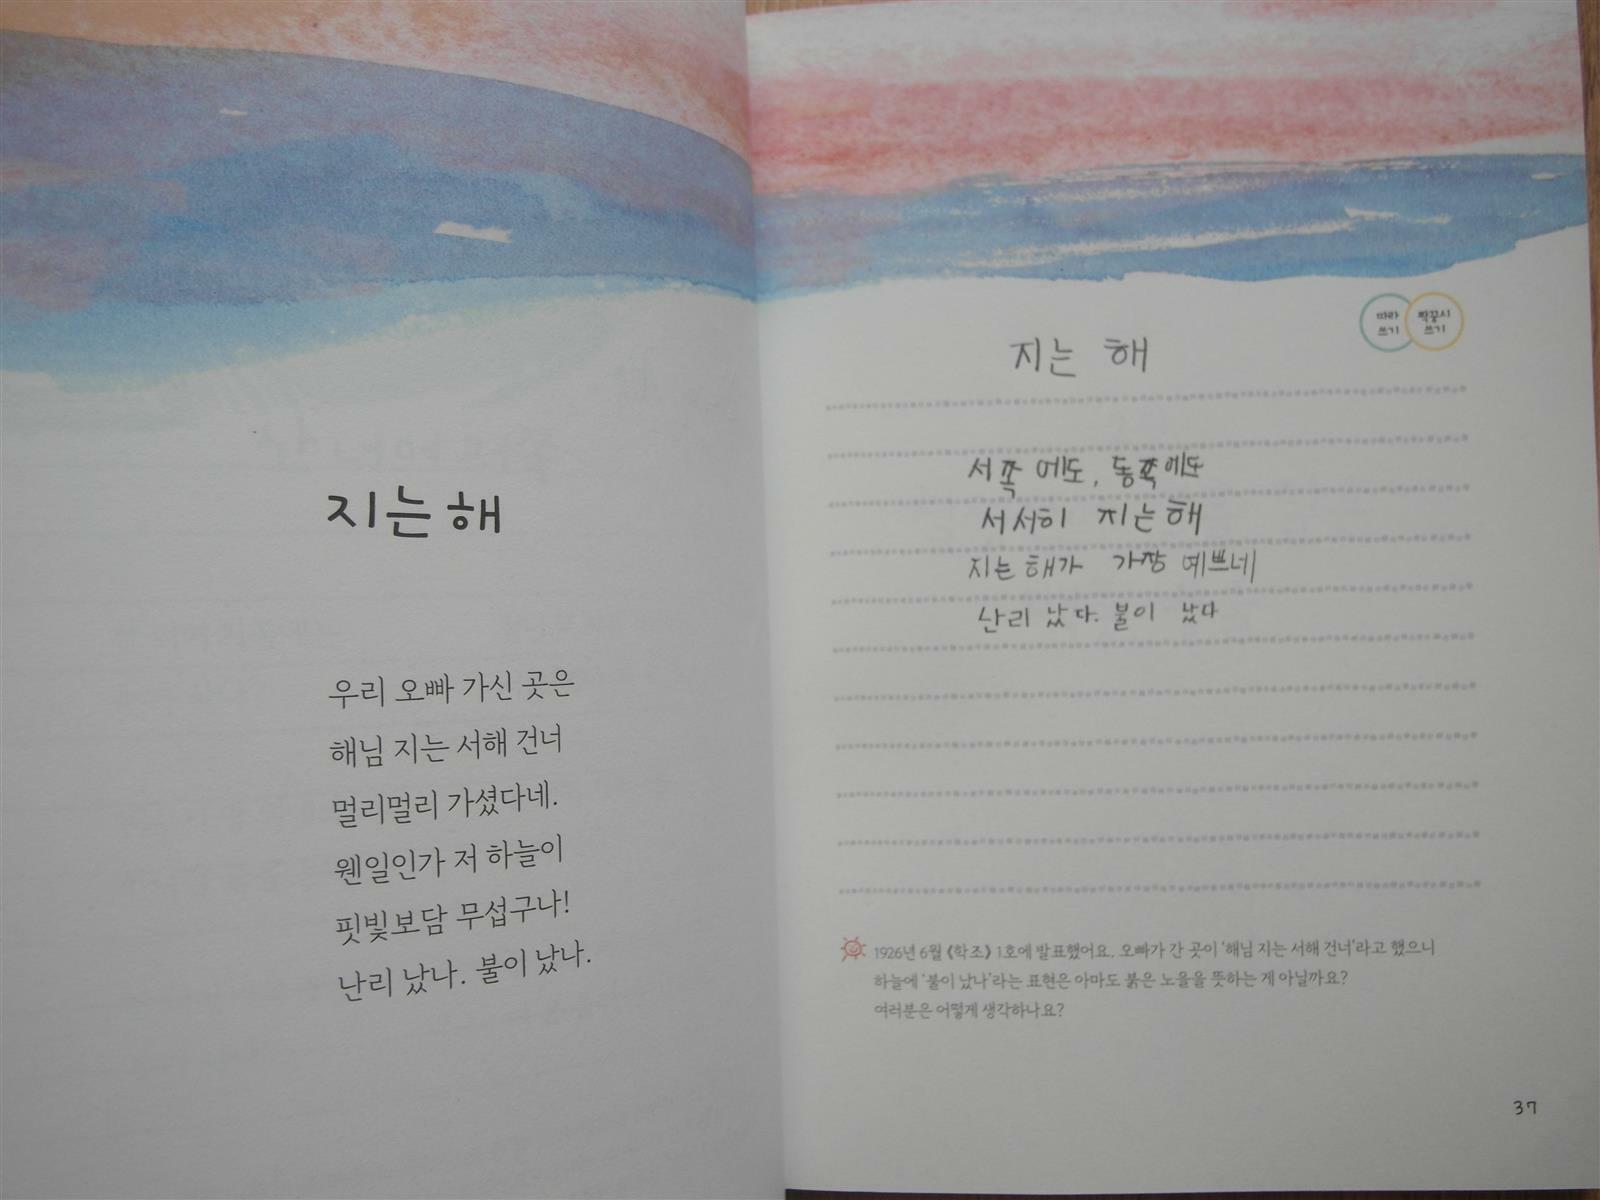 지는 해
우리 오빠 가신 곳은
해님 지는 서해 건너
멀리멀리 가셨다네.
웬일인가 저 하늘이
핏빛보담 무섭구나!
난리 났나. 불이 났나.
따라
쓰기
짝꿍시
쓰기
지는 해
서쪽 에도, 동쪽에도
서서히 지는 해
지는 해가 가장 예쁘네
난리 났다. 불이 났다
1926년 6월 《학조》 1호에 발표했어요. 오빠가 간 곳이 '해님 지는 서해 건너'라고 했으니
하늘에 '불이 났나'라는 표현은 아마도 붉은 노을을 뜻하는 게 아닐까요?
여러분은 어떻게 생각하나요?
37